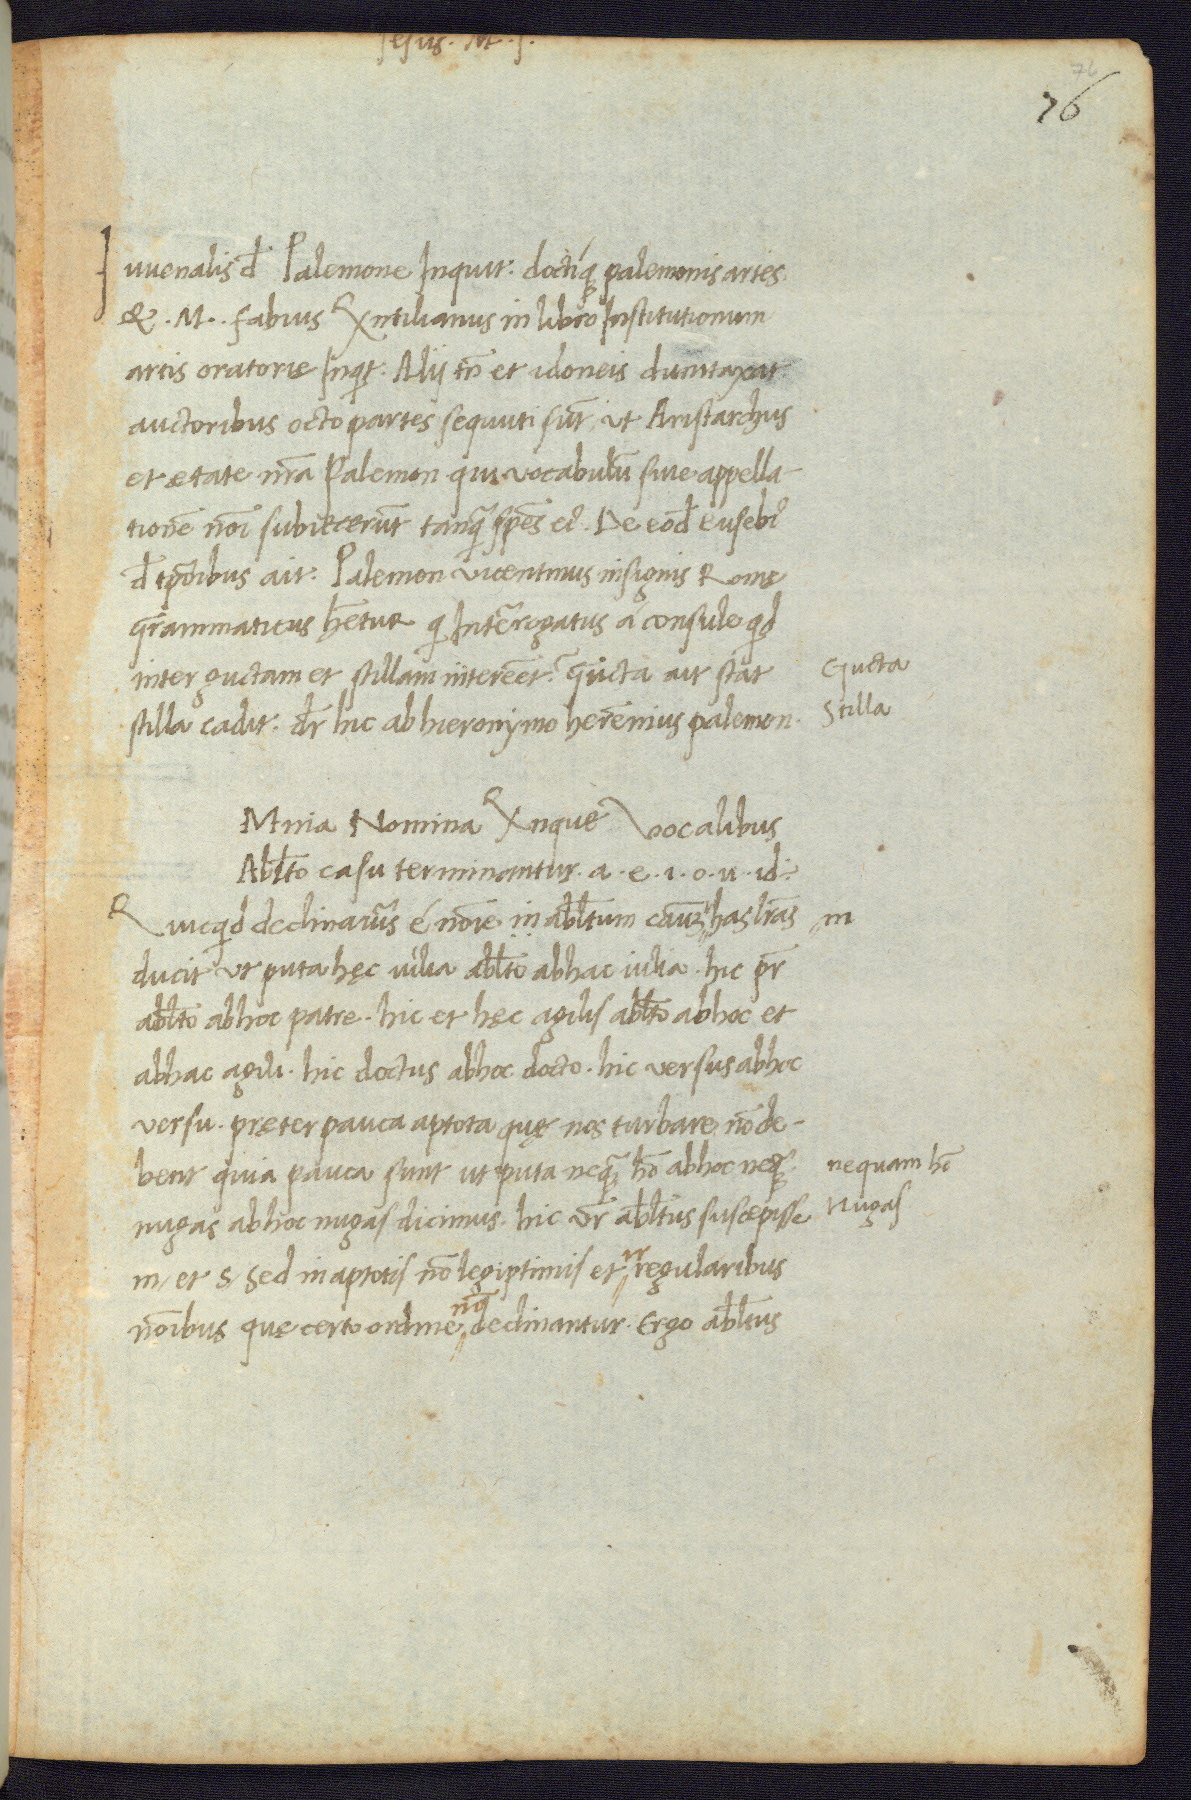 Jesus. M. J.
76
76
Iuvenalis d̄ Palemone Inquit. doctiq; palemonis artes
& . M. . fabius Quintilianus in libro Institutionum
artis oratorie Inqt. Alij tn̄ et idoneis dumtaxat
auctoribus octo partes sequuti sūt ut Aristarchus
et etate nr̄a Palemon qui vocabulū sive appella-
tionē noī subiecerūt tanq̄ spēs ei'. De eod̄ eusebi'
d̄ tp̄oribus ait. Palemon vicentinus insignis Romę
grammaticus hētur q Inter̄rogatus a consule qd
inter guctam et stillam ītereēt? gucta ait stat
Gucta
stilla cadit. dr̄ hic ab hieronymo herēnius palemon.
Stilla
Mnia Nomina Quinque Vocalibus
Abl̄to casu terminantur. a. e. i. o. u. id.
Quicqd declinatus é nōie in abl̄tum casuȝ has lr̄as
m
ducit ut puta hęc iulia abl̄to ab hac iulia. hic pr̄
abl̄to ab hoc patre. hic et hęc agilis abl̄to ab hoc et
ab hac agili. hic doctus ab hoc docto. hic versus ab hoc
versu. pręter pauca aptota quę nos turbare nō de-
bent quia pauca sunt ut puta nequȝ hō ab hoc nequȝ
nequam hō
nugas ab hoc nugas dicimus. hic vr̄ abl̄tus suscepisse
Nugas
m / et s / sed in aptotis nō legiptimis et ir regularibus
nōibus que certo ordine nq̄ declinantur. Ergo abl̄tus